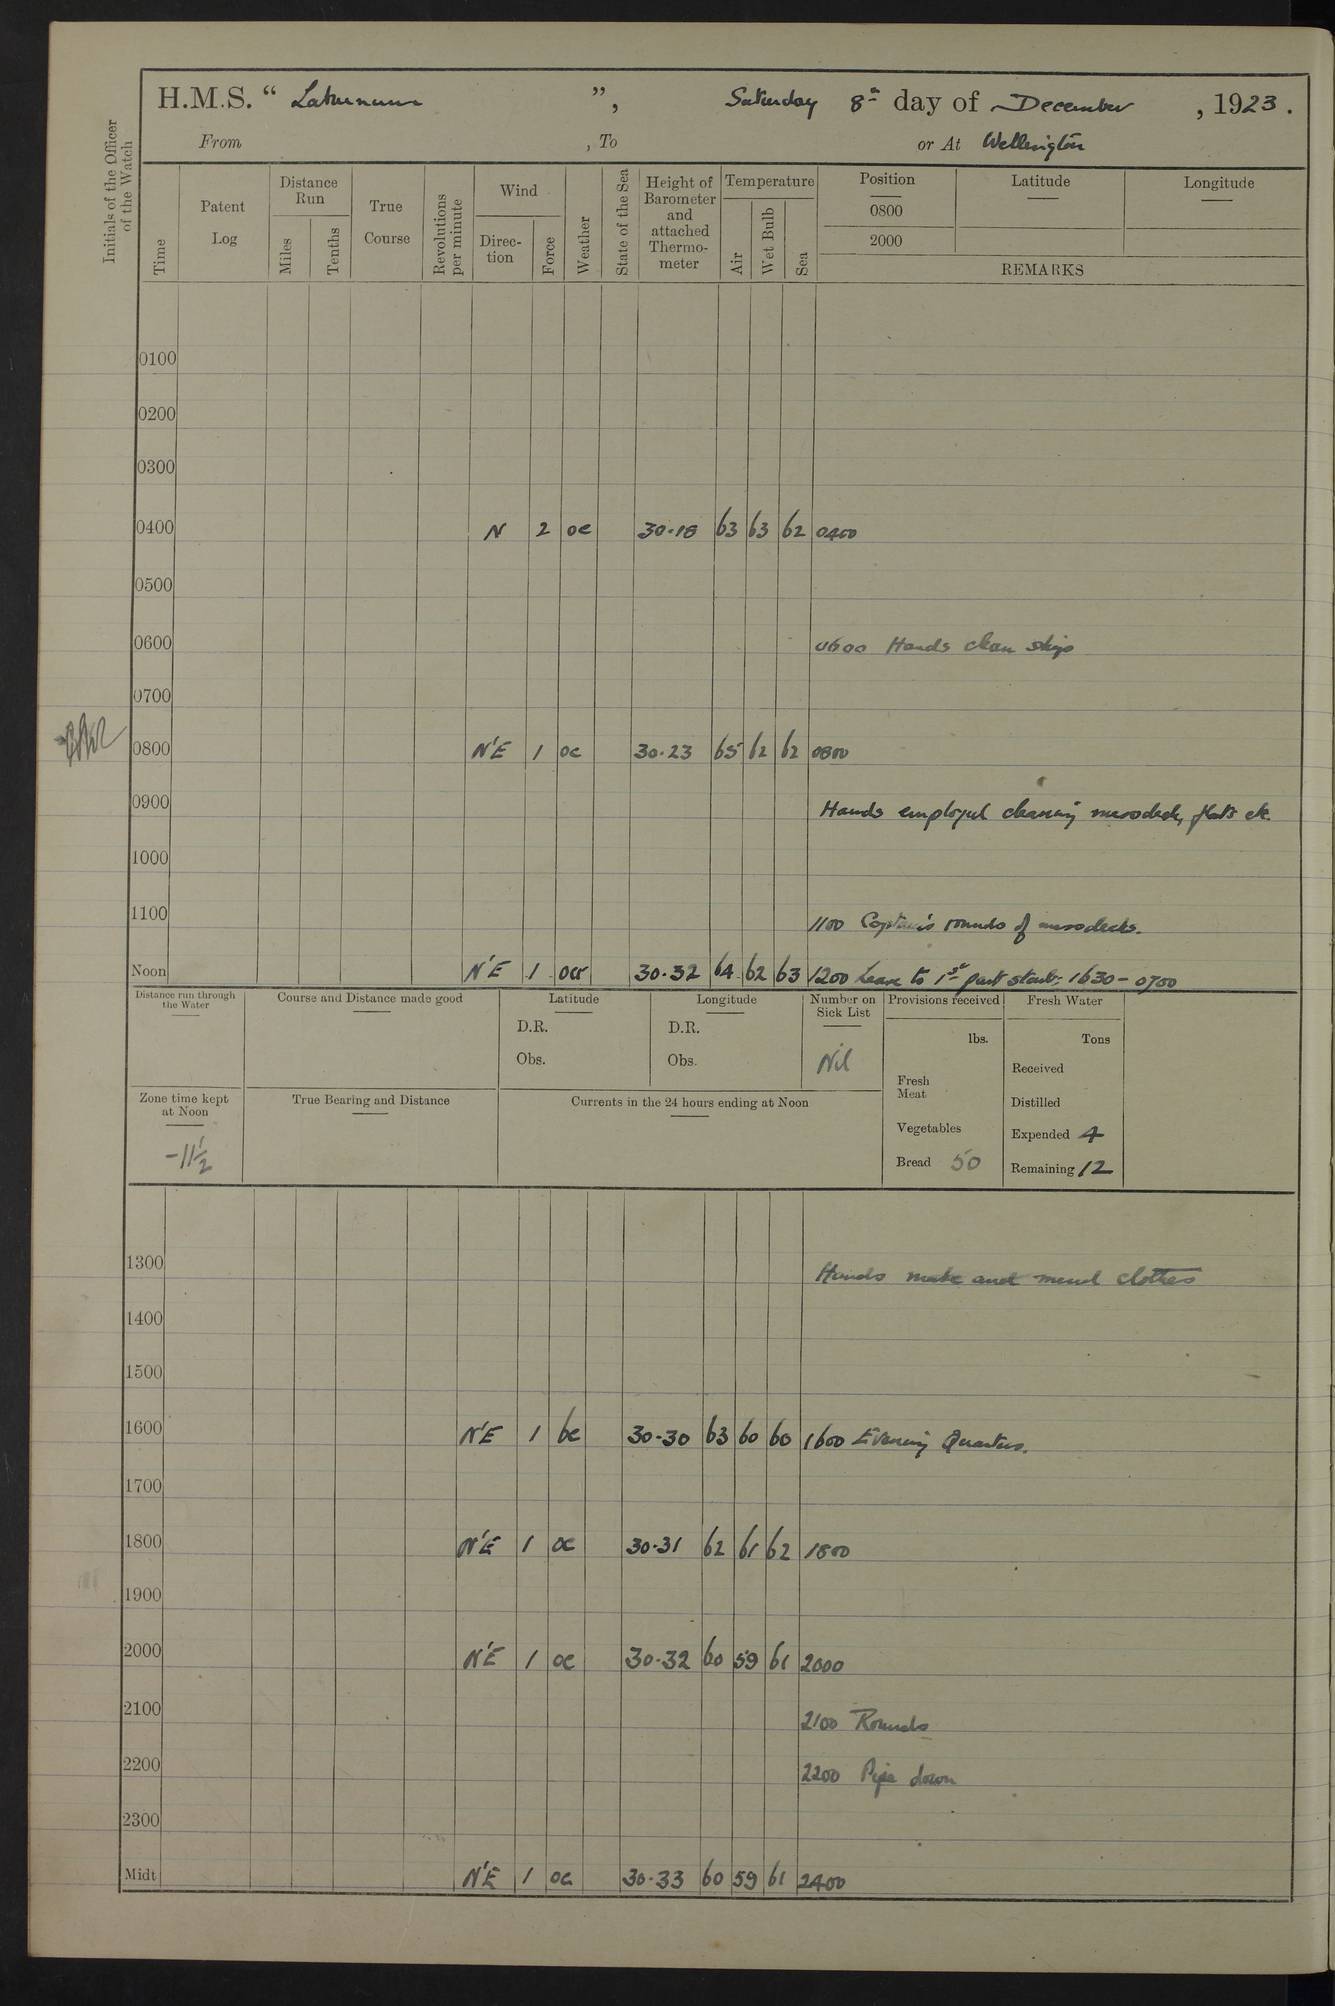 H.M.S. “ Laburnum ”, Saturday 8th day of December , 1923 .
From , To or At Wellington
Initials of the Officer of the Watch
Time
Patent Log
Distance Run
Miles
Tenths
True Course
Revolutions per minute
Wind
Direc-tion
Force
Weather
State of the Sea
Height of Barometer and attached Thermo-meter
Temperature
Air
Wet Bulb
Sea
Position Latitude Longitude
0800
2000
REMARKS
0100
0200
0300
0400 N 2 oc 30·18 63 63 62 0400
0500
0600 0600 Hands clean ship
0700
0800 N'E 1 oc 30·23 65 62 62 0800
0900 Hands employed cleaning messdeck, flats etc.
1000
1100 1100 Captain's rounds of messdecks.
Noon N'E 1 ocr 30·32 64 62 63 1200 Leave to 1st part starb: 1630 - 0700
Distance run through the Water
Course and Distance made good
Latitude
D.R.
Obs.
Longitude
D.R.
Obs.
Number on Sick List
Nil
Provisions received
lbs.
Fresh Meat
Vegetables
Bread 50
Fresh Water
Tons
Received
Distilled
Expended 4
Remaining 12
Zone time kept at Noon
-11½
True Bearing and Distance
Currents in the 24 hours ending at Noon
1300 Hands make and mend clothes
1400
1500
1600 N'E 1 bc 30·30 63 60 60 1600 Evening Quarters.
1700
1800 N'E 1 oc 30·31 62 61 62 1800
1900
2000 N'E 1 oc 30·32 60 59 61 2000
2100 2100 Rounds
2200 2200 Pipe down
2300
Midt N'E 1 oc 30·33 60 59 61 2400